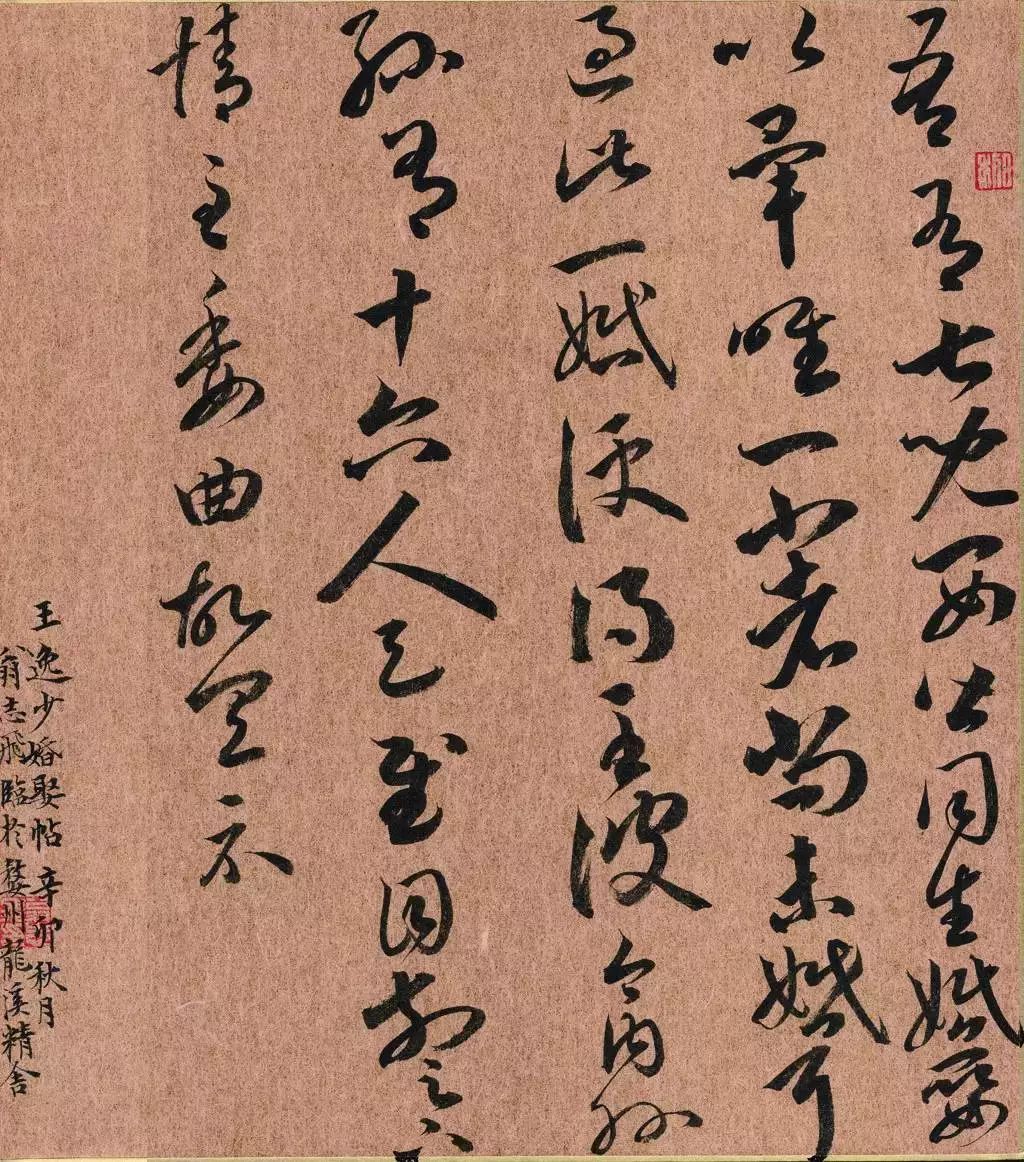 吾有七兒一女皆同生婚娶
以畢唯一小者尚未婚耳
過此一婚便得至彼今內外
孫有十六人足慰目前足下
情至委曲故具示
王逸少婚娶帖辛卯秋月
翁志飛臨於婺州龍溪精舍